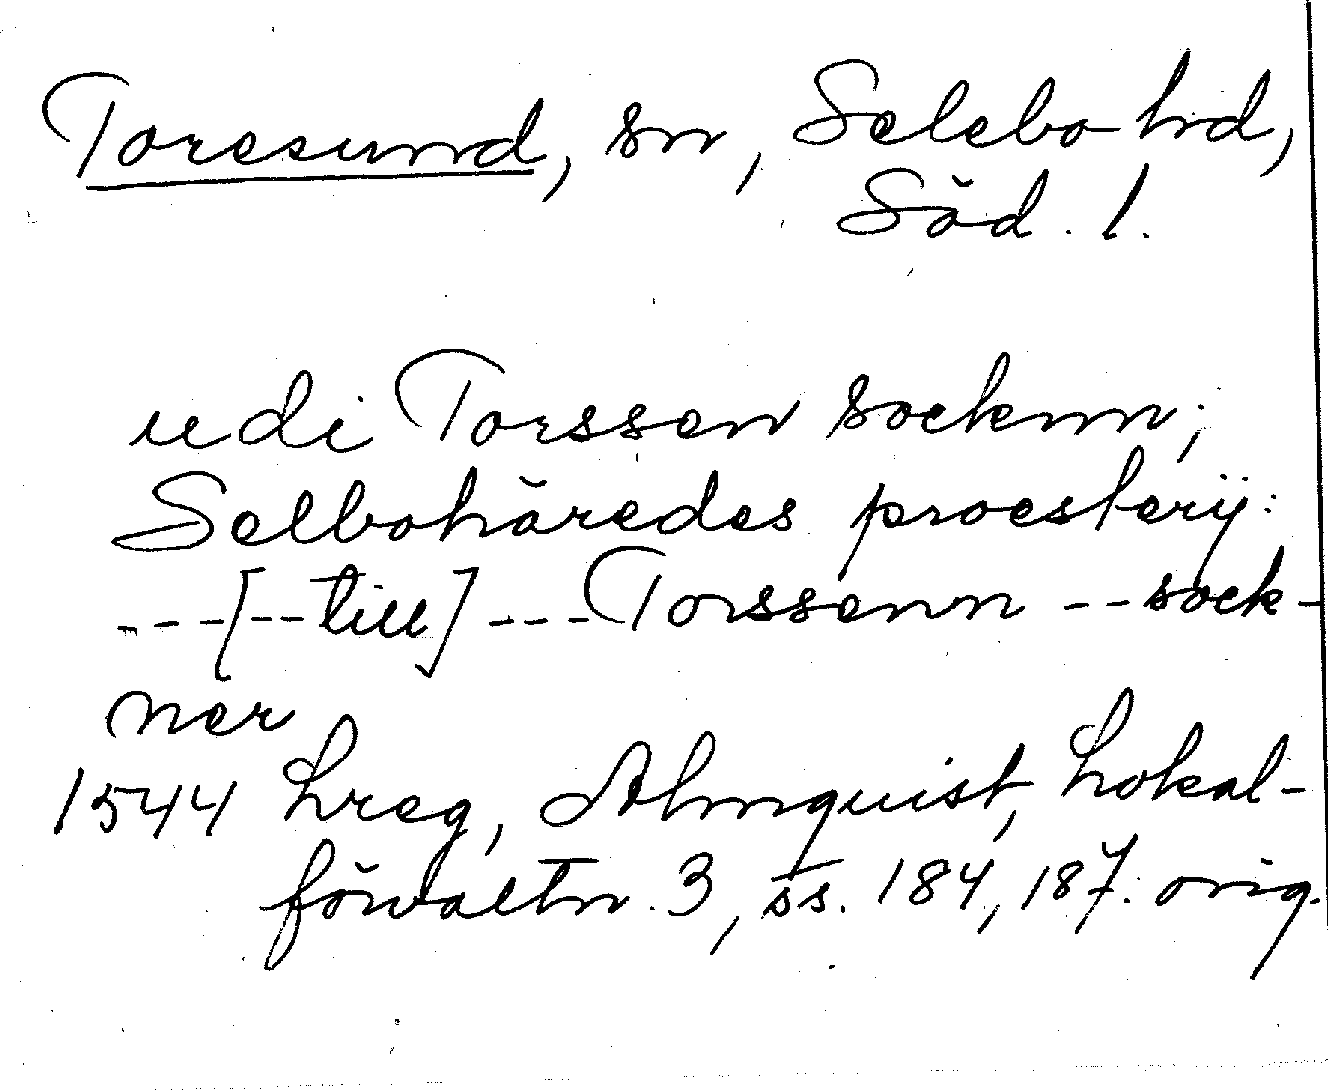 Toresund, sn, Selebo hd,
Söd. l.
udi Torssen socknn;
Selbohäredes proesterij:
---[--till]---Torssenn --sock-
ner
1544 Lreg, Almquist, Lokal-
förvaltn. 3, ss. 184, 187. orig.